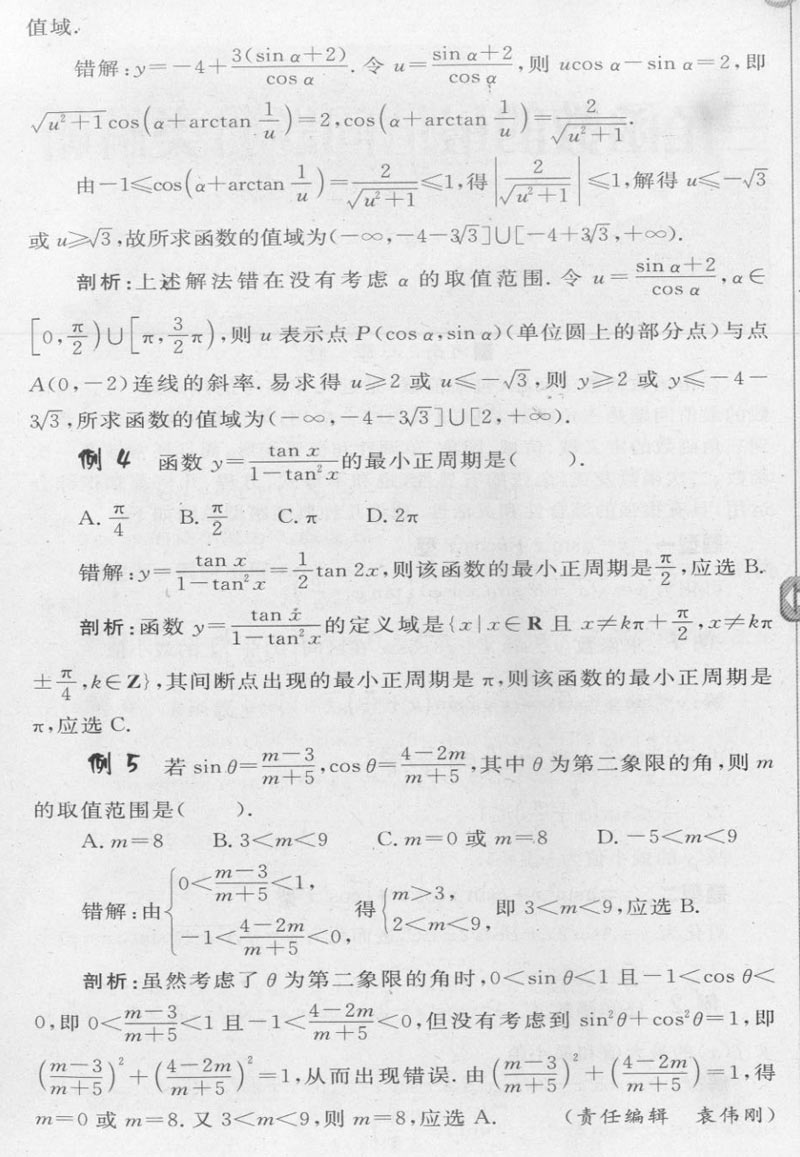 值域.
错解:y=-4+3(sin α+2)/cos α.令 u=(sin α+2)/cos α,则 ucos α-sin α=2,即
√(u²+1)cos(α+arctan 1/u)=2,cos(α+arctan 1/u)=2/√(u²+1).
由-1≤cos(α+arctan 1/u)=2/√(u²+1)≤1,得|2/√(u²+1)|≤1,解得 u≤-√3
或 u≥√3,故所求函数的值域为(-∞,-4-3√3]∪[-4+3√3,+∞).
剖析:上述解法错在没有考虑 α 的取值范围.令 u=(sin α+2)/cos α,α∈
[0,π/2)∪[π,3/2π),则 u 表示点 P(cos α,sin α)(单位圆上的部分点)与点
A(0,-2)连线的斜率.易求得 u≥2 或 u≤-√3,则 y≥2 或 y≤-4-
3√3,所求函数的值域为(-∞,-4-3√3]∪[2,+∞).
例 4 函数 y=tan x/(1-tan²x)的最小正周期是( ).
A.π/4 B.π/2 C.π D.2π
错解:y=tan x/(1-tan²x)=1/2 tan 2x,则该函数的最小正周期是π/2,应选 B.
剖析:函数 y=tan x/(1-tan²x)的定义域是{x|x∈R 且 x≠kπ+π/2,x≠kπ
±π/4,k∈Z},其间断点出现的最小正周期是 π,则该函数的最小正周期是
π,应选 C.
例 5 若 sin θ=(m-3)/(m+5),cos θ=(4-2m)/(m+5),其中 θ 为第二象限的角,则 m
的取值范围是( ).
A.m=8 B.3<m<9 C.m=0 或 m=8 D.-5<m<9
错解:由{0<(m-3)/(m+5)<1,-1<(4-2m)/(m+5)<0,得{m>3,2<m<9,即 3<m<9,应选 B.
剖析:虽然考虑了 θ 为第二象限的角时,0<sin θ<1 且-1<cos θ<
0,即 0<(m-3)/(m+5)<1 且-1<(4-2m)/(m+5)<0,但没有考虑到 sin²θ+cos²θ=1,即
((m-3)/(m+5))²+((4-2m)/(m+5))²=1,从而出现错误.由((m-3)/(m+5))²+((4-2m)/(m+5))²=1,得
m=0 或 m=8.又 3<m<9,则 m=8,应选 A. (责任编辑 袁伟刚)